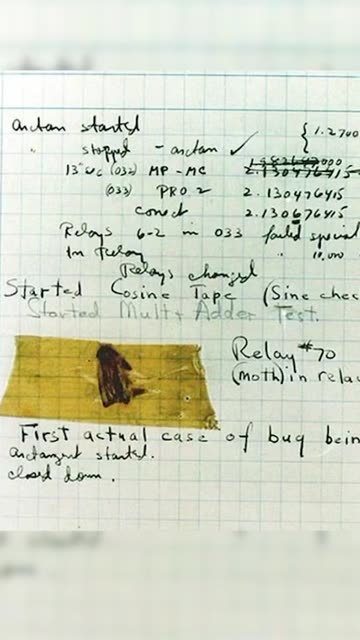 arctan started
{ 1.2700
" stopped - arctan ✓
13"uc (032) MP - MC 2.130476415
(033) PRO 2 2.130476415
conect 2.130676415
Relays 6-2 in 033 failed special
In Relay " 10,000
Relays changed
Started Cosine Tape (Sine chec
Started Mult + Adder Test.
Relay #70
(moth) in relay
First actual case of bug bein
arctangent started.
closed down.